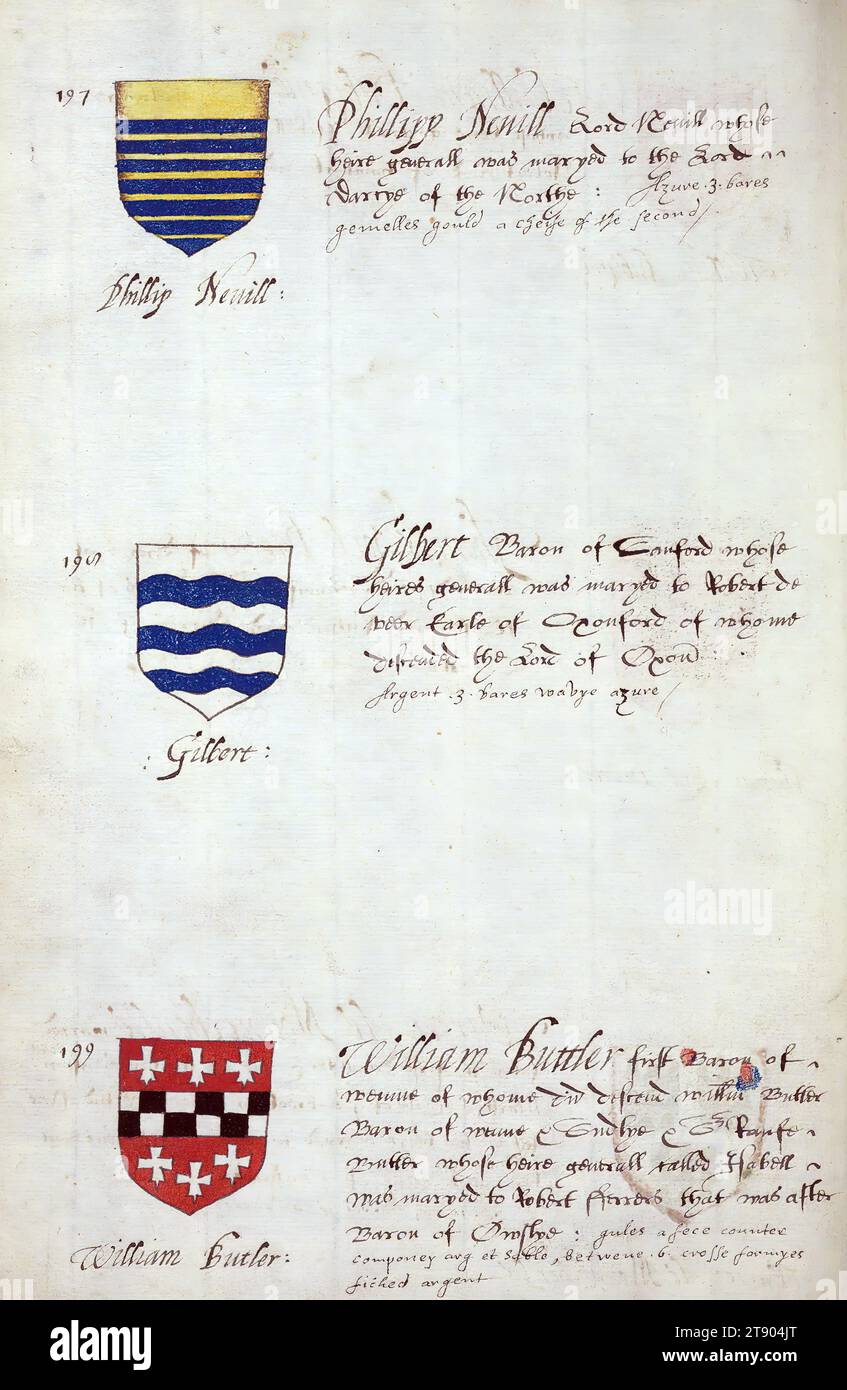 197
Phillipp Nevill Lord Nevill whose
heire generall was maryed to the Lord
Darcye of the Northe : Azure .3. bares
gemelles gould a cheife of the second /
Phillip Nevill :
198
Gilbert Baron of Sanford whose
heires generall was maryed to Robert de
veer Earle of Oxonford of whome
descended the Lord of Oxon :
Argent .3. bares wavye azure /
: Gilbert :
199
William Buttler first Baron of
wemme of whome did descend willm Butler
Baron of wemme & Sr Raufe
Butler whose heire generall called Isabell
was maryed to Robert fferrers that was after
Baron of Owslye : gules a fece counter
componey arg et Sable, betwene .6. crosse formyes
fiched argent
William Butler :
alamy
alamy
alamy
alamy
Image ID: 2T904JT
www.alamy.com